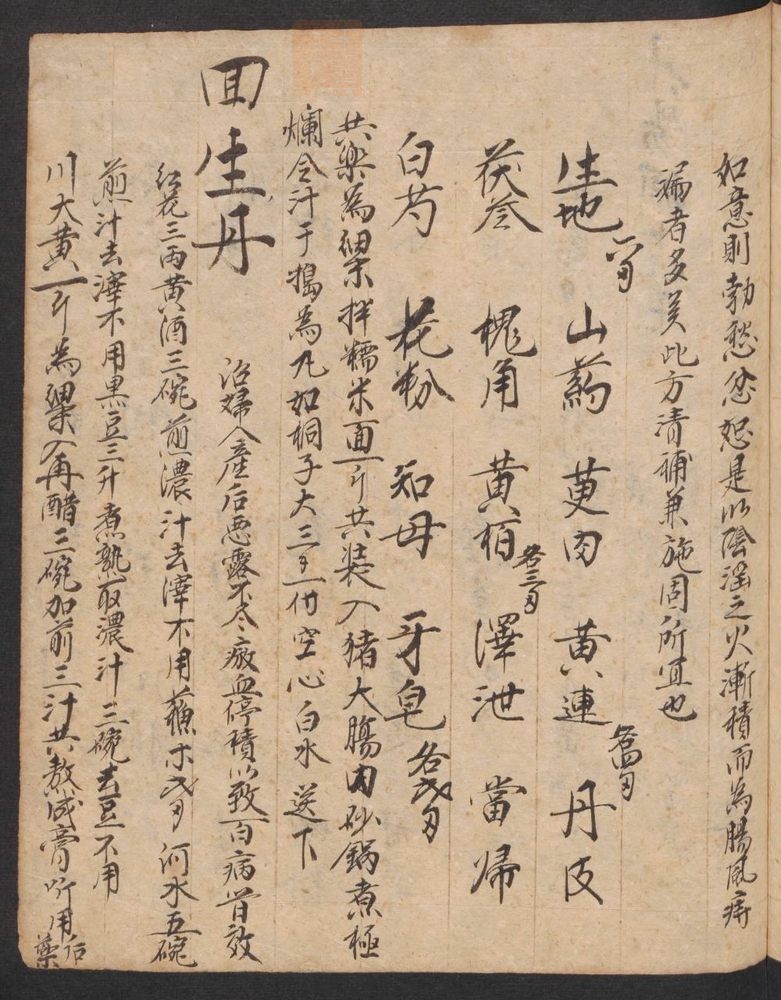 如意則勃愁忿怒是以陰淫之火漸積而為腸風痔
漏者多矣此方清補兼施固所宜也
生地 山药 萸肉 黃連 各四刄 丹皮
茯苓 槐角 黃栢 各三刄 澤泄 當帰
白芍 花粉 知母 牙皂 各弍刄
共藥為細末拌糯米面一斤共装入猪大腸內砂鍋煮極
爛合汁于搗為丸如桐子大三钱一付空心白水送下
回生丹 治婦人產后悪露不尽瘀血停積以致百病皆效
紅花三両黃酒三碗煎濃汁去滓不用蘓木弍刄河水五碗
煎汁去滓不用黑豆三升煮熟取濃汁三碗去豆不用
川大黃一斤為細末入再醋三碗加前三汁共熬成膏听用 后藥